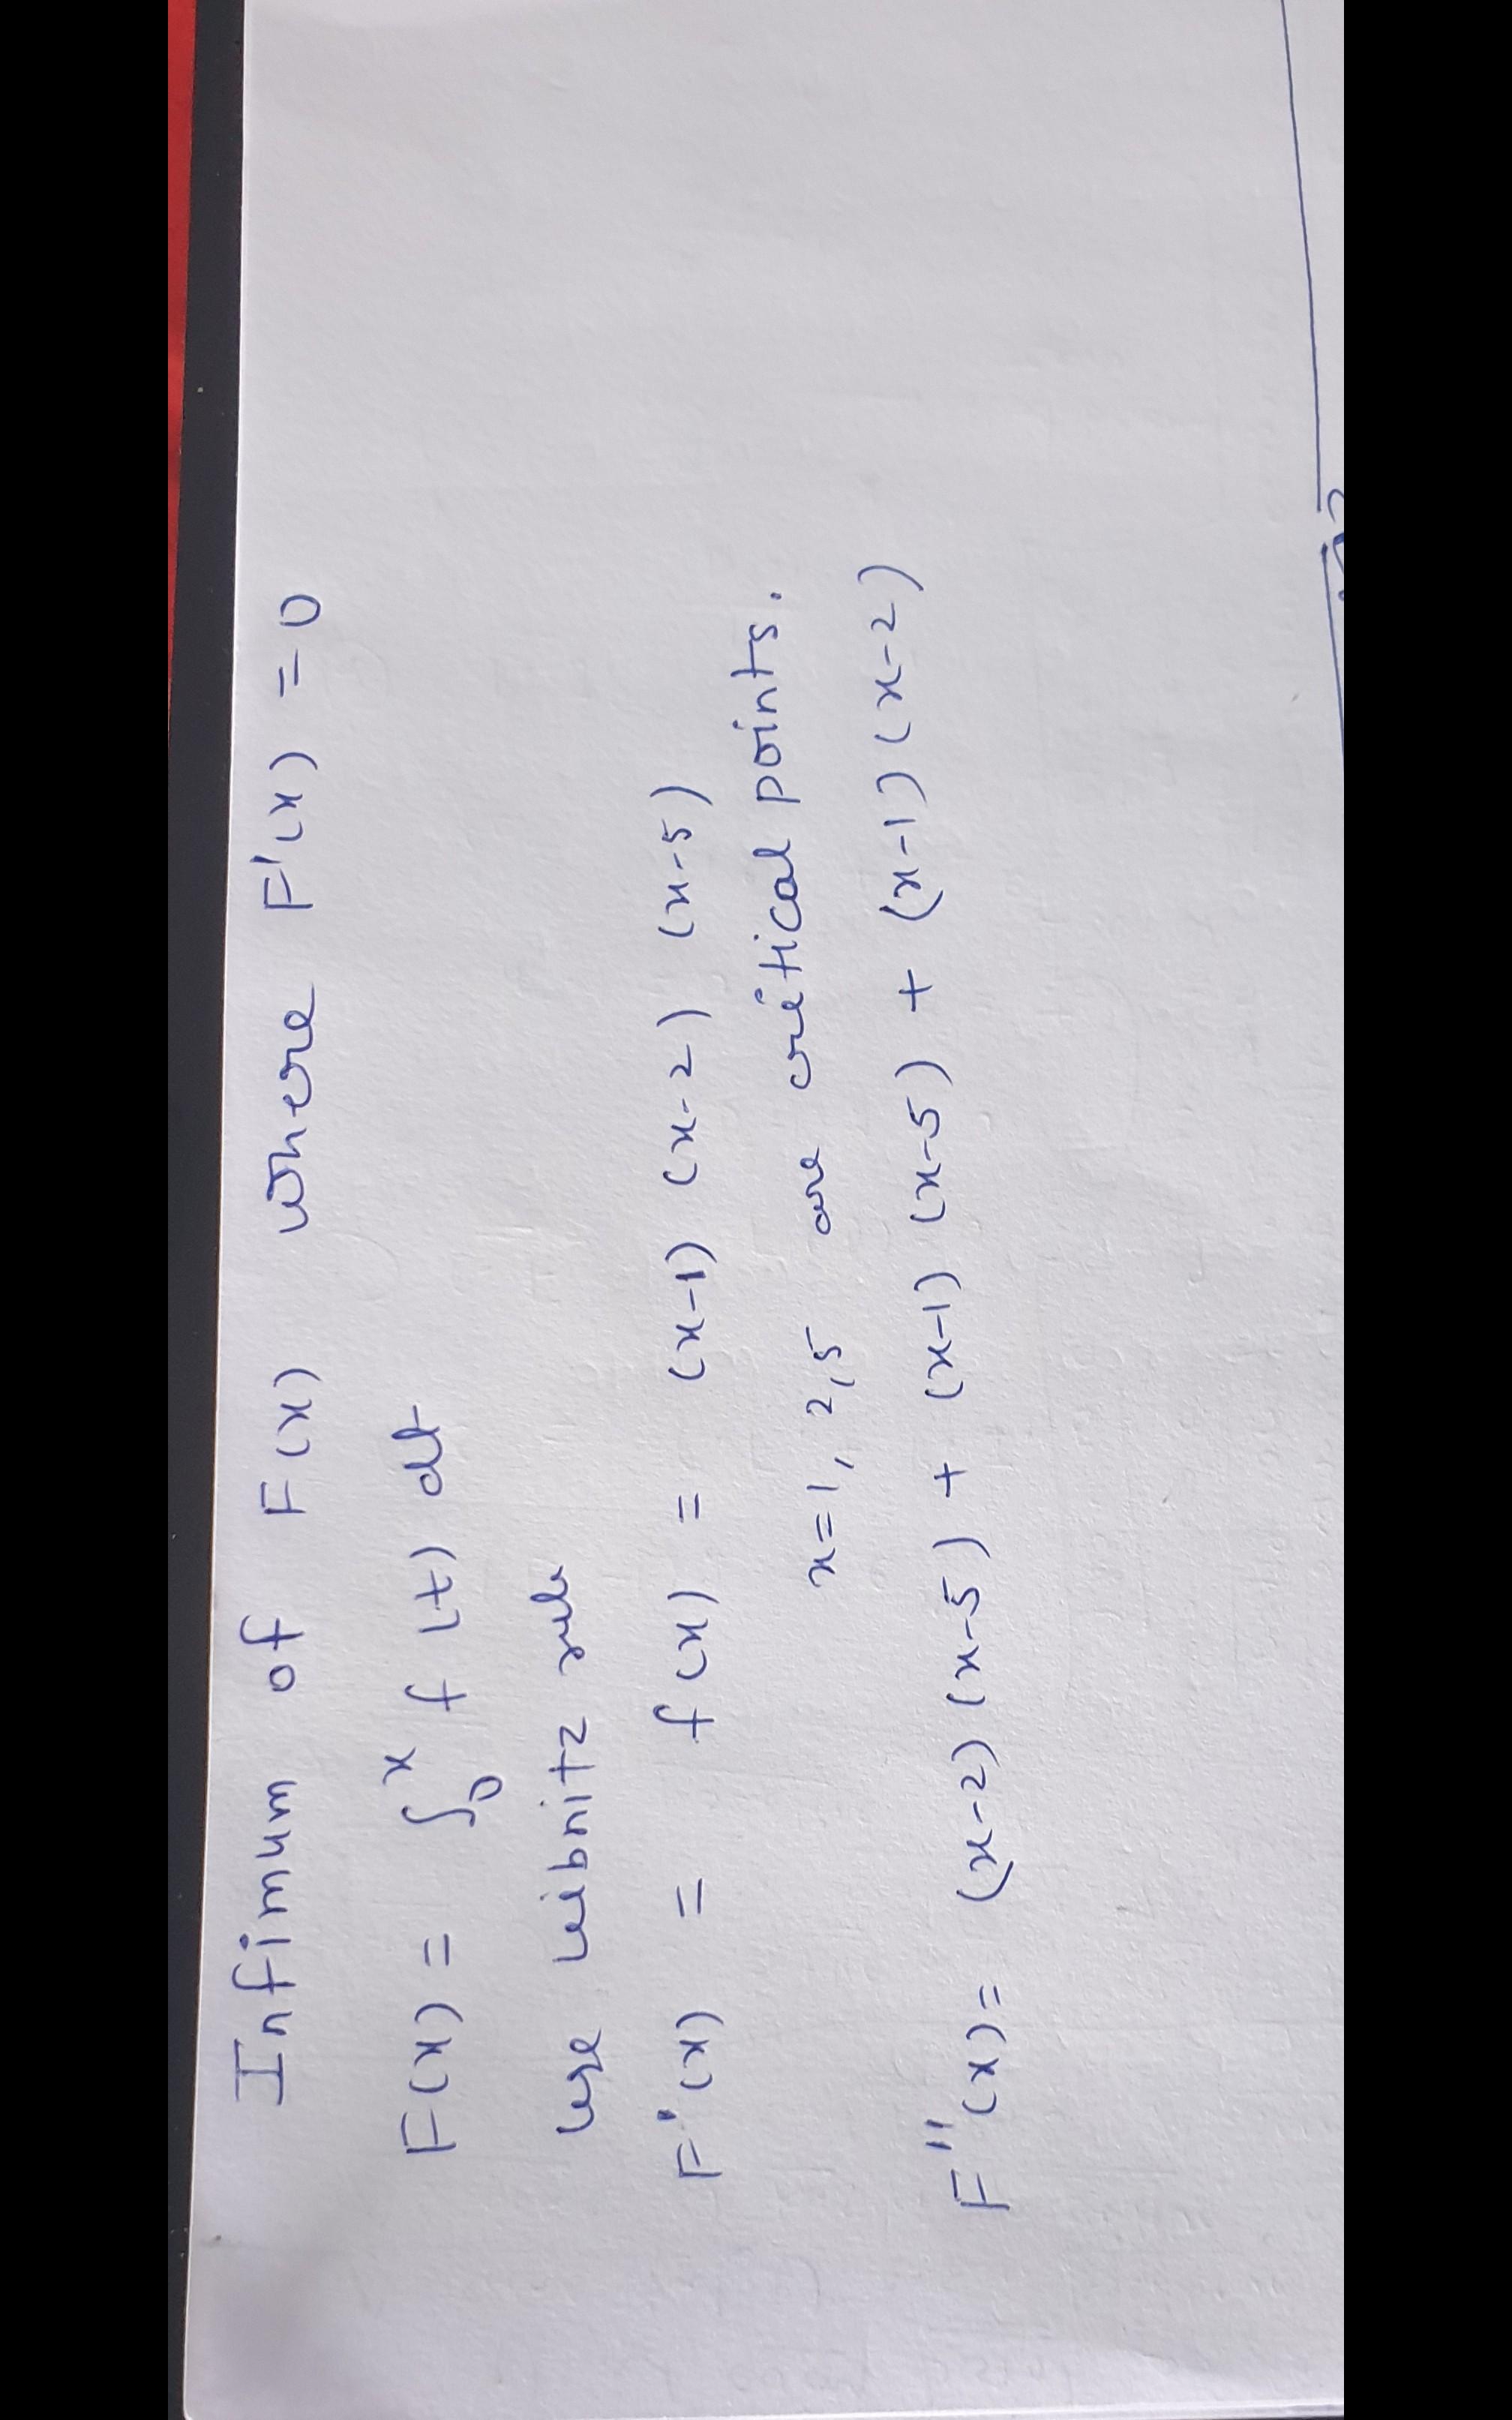 Infimum of F(x) where F'(x) = 0
F(x) = ∫₀ˣ f(t) dt
use leibnitz rule
F'(x) = f(x) = (x-1) (x-2) (x-5)
x=1, 2,5 are critical points.
F''(x) = (x-2) (x-5) + (x-1) (x-5) + (x-1) (x-2)